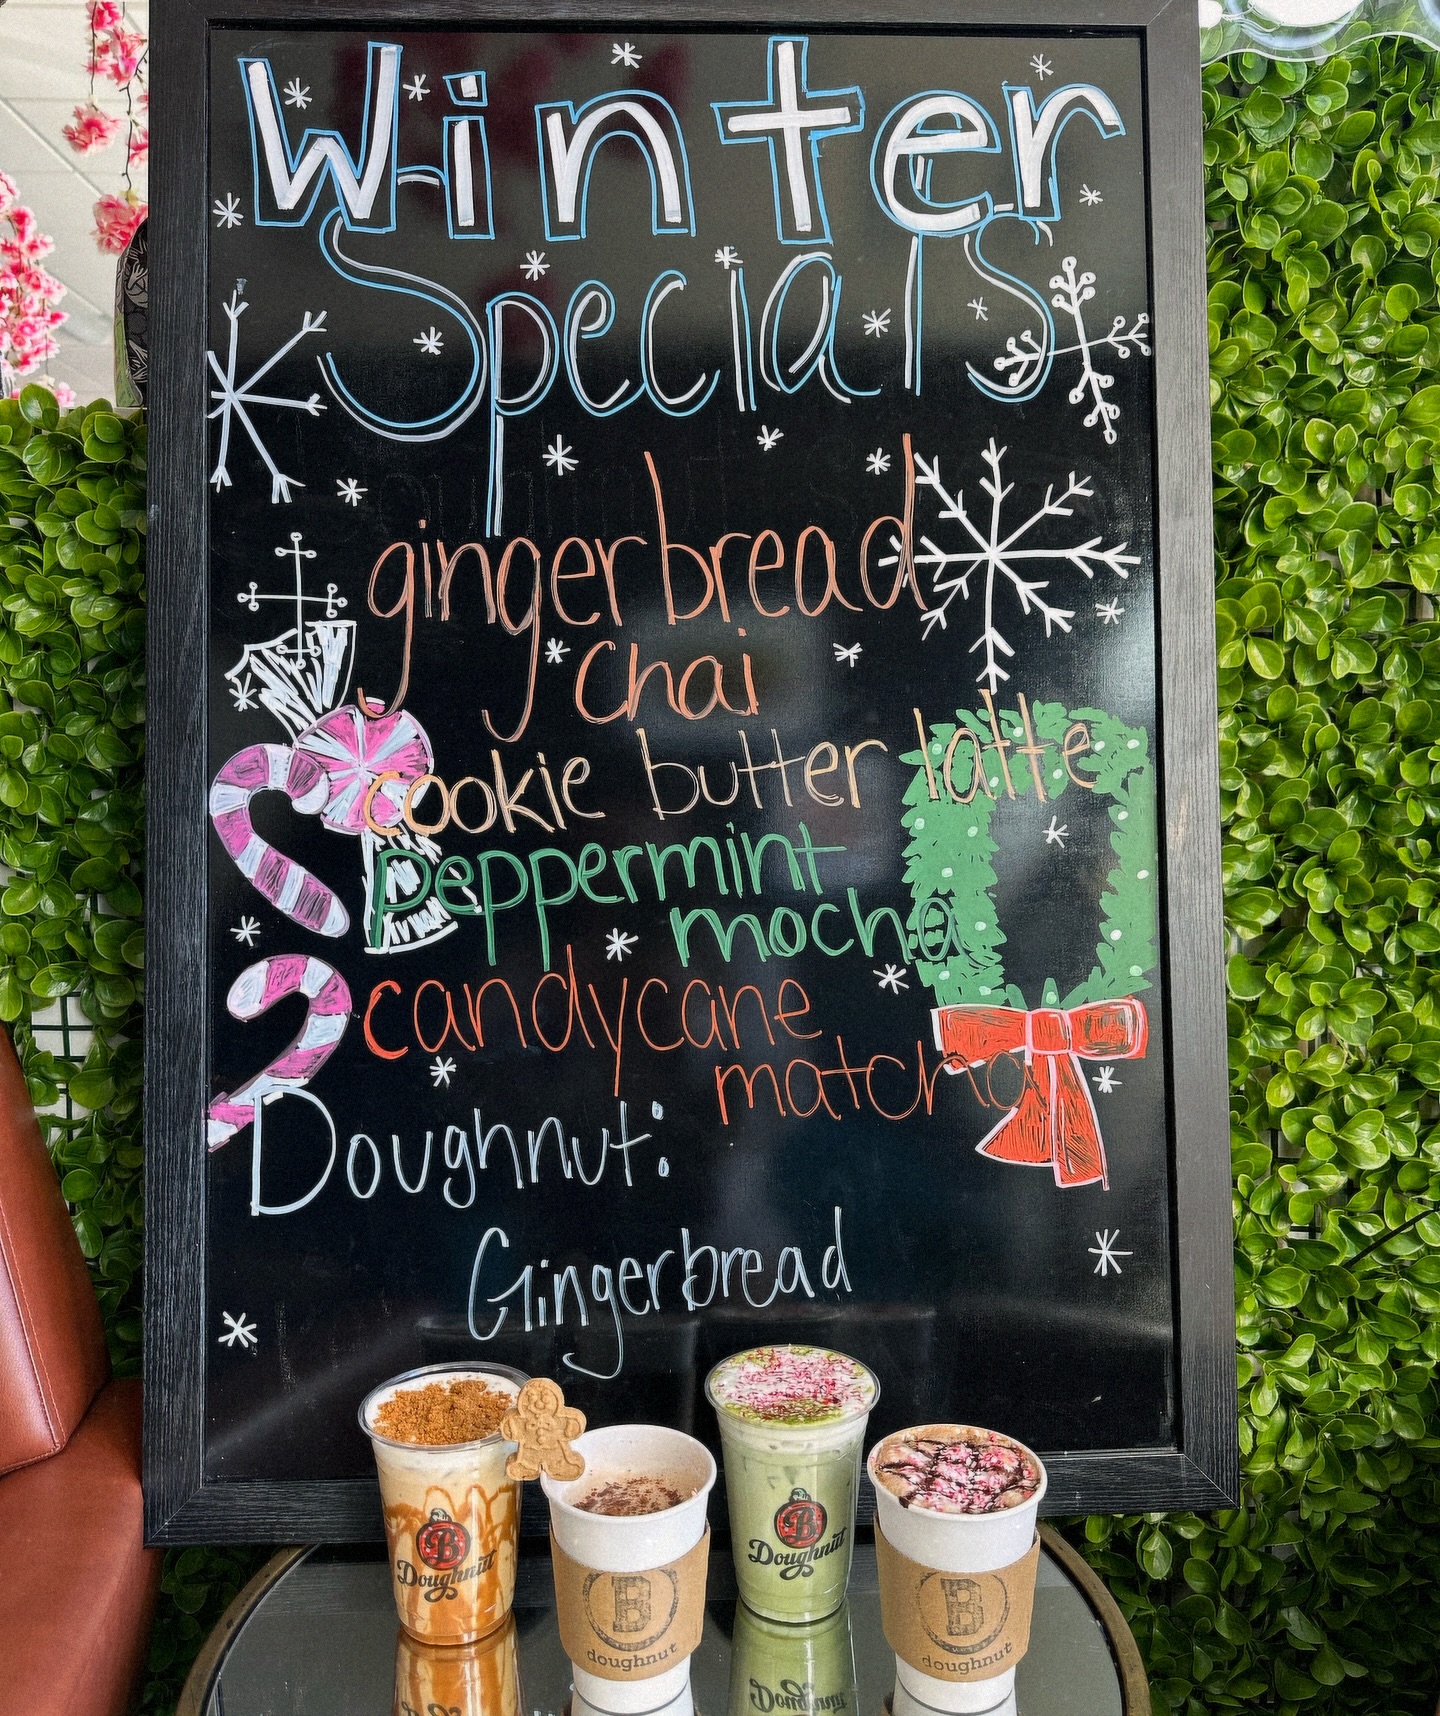 Winter
Specials
gingerbread
chai
cookie butter latte
peppermint
mocha
candycane
matcha
Doughnut:
Gingerbread
B
Doughnut
B
doughnut
B
Doughnut
B
doughnut